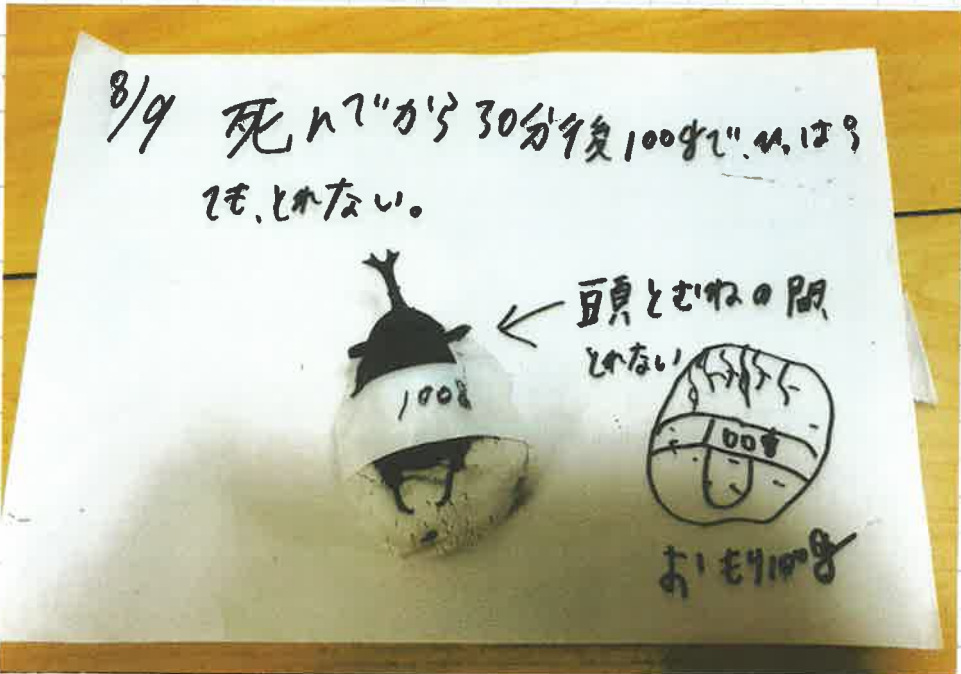 8/9 死んでから30分後100gで、ひっぱっ
ても、とれない。
頭とむねの間
とれない
100g
100g
おもり100g